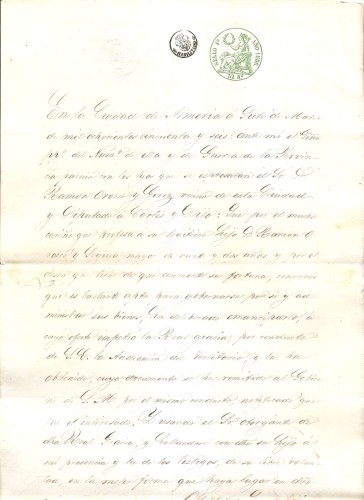 SELLO 1º AÑO 1856
En la Ciudad de Almeria a Siete de Marzo
de mil ochocientos cincuenta y seis: ante mi el Escno
ppco. del Numo. de ella y de Guerra de la Provincia
y testigos que se espresarán el Sr. D.
Ramon Orozco y Gerez vecino de esta Ciudad
y Diputado a Cortes y Dijo: Que por el mucho
cariño que profesa a su lexitimo hijo D. Ramon O
rozco y Segura mayor de veinte y dos años y por el
deseo que tiene de que aumente su fortuna, conociendo
que es bastante apto para gobernarse por si y ad
ministrar sus bienes, ha deliberado emanciparlo, a
cuyo efecto impetró la Real gracia por conducto
de S.E. la Audiencia del territorio, y la ha
obtenido, cuyo documento se ha remitido al Gobier
de S.M. por el mismo conducto, notificado que
fue el interesado. Y usando el Sr. otorgante de
dha Real Gracia, y hallandose con dho Su hijo a
mi presencia y la de los testigos, de su libre volun
tad, en la mejor forma que haya lugar en dro